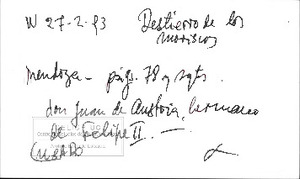 N 27-2-93 Destierro de los
moriscos
Mendoza - págs. 78 y sgts.
don Juan de Austria, hermano
de Felipe II. —